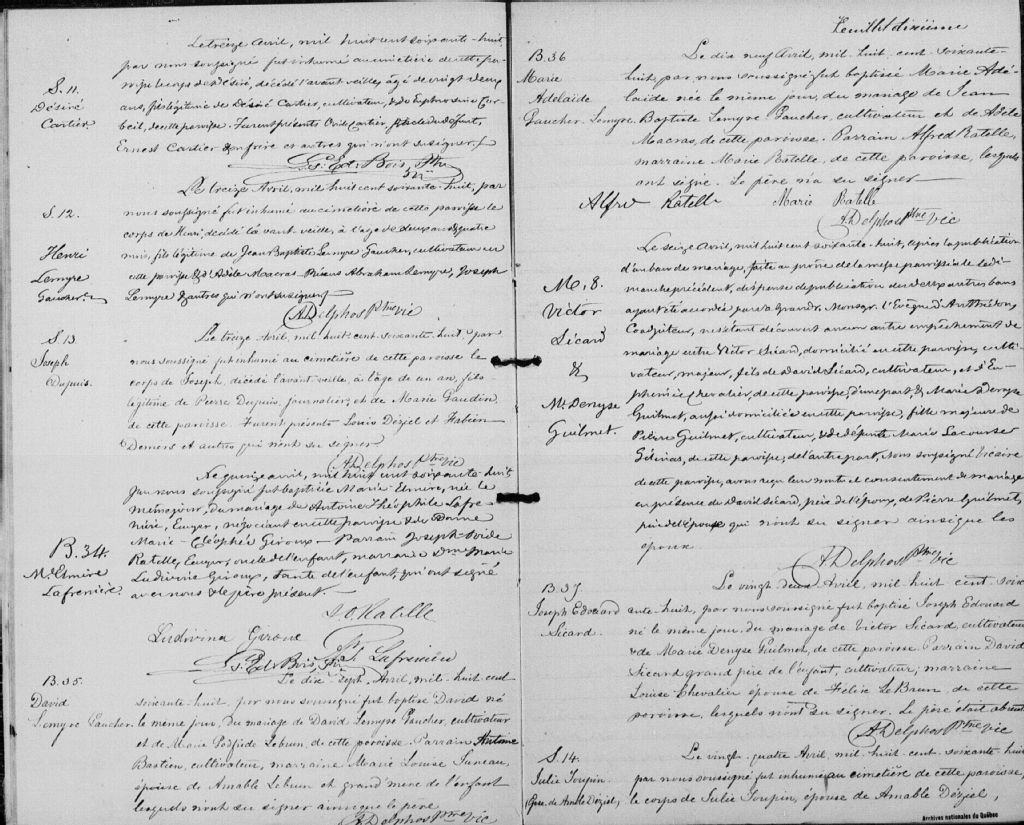 Le treize Avril, mil huit cent soixante-huit,
par nous soussigné fut inhumé au cimetière de cette pa-
roisse le corps de Désiré, décédé l'avant veille, âgé de vingt deux
S. 11.
Désiré
Cartier
ans, fils légitime de Désiré Cartier, cultivateur, & de Euphrosine Cor-
beil, de cette paroisse. Furent présents Ovide Cartier, frère du défunt,
Ernest Cartier son frère et autres qui n'ont su signer.
Ptre
Le treize Avril, mil huit cent soixante-huit, par
S. 12.
Henri
Lemyre
Gaucher
nous soussigné fut inhumé au cimetière de cette paroisse le
corps de Henri, décédé l'avant veille, à l'âge de deux ans & quatre
mois, fils légitime de Jean Baptiste Lemyre Gaucher, cultivateur en
cette paroisse & d'Adèle Macras. Abraham Lemyre, Joseph
Lemyre & autres qui n'ont su signer
A Delphos Ptre Vic
S 13
Joseph
Dupuis.
Le treize Avril, mil huit cent soixante-huit, par
nous soussigné fut inhumé au cimetière de cette paroisse le
corps de Joseph, décédé l'avant veille, à l'âge de un an, fils
légitime de Pierre Dupuis, journalier, et de Marie Gaudin
de cette paroisse. Furent présents Louis Déziel et Fabien
Demers et autres qui n'ont su signer
A Delphos Ptre Vic
Le quinze avril, mil huit cent soixante-huit
par nous soussigné fut baptisée Marie Elmire, née le
même jour, du mariage de Antoine Théophile Lafre-
nière, Ecuyer, négociant en cette paroisse & de Dame
Marie-Cléophée Giroux. Parrain Joseph-Ovide
B. 34.
Me Elmire
Lafrenière
Ratelle, Ecuyer, oncle de l'enfant, marraine Dme Marie
Ludivine Giroux, tante de l'enfant, qui ont signé
avec nous & le père présent.
J. O. Ratelle
Ludivina Giroux
Lafrenière
B. 35.
David
Lemyre Gaucher
Le dix-sept Avril, mil-huit-cent
soixante-huit, par nous soussigné fut baptisé David né
le même jour, du mariage de David Lemyre Gaucher, cultivateur
et de Marie Lebrun, de cette paroisse. Parrain Antoine
Bastien, cultivateur, marraine Marie Louise Juneau,
épouse de Amable Lebrun et grand'mère de l'enfant
lesquels n'ont su signer ainsi que le père
A Delphos Ptre Vic
Feuillet dixième
B. 36
Marie
Adelaïde
Gaucher. Lemyre.
Le dix neuf Avril, mil-huit-cent-soixante-
huit, par nous soussigné fut baptisée Marie Adé-
laïde née le même jour, du mariage de Jean
Baptiste Lemyre Gaucher, cultivateur et de Adèle
Macras, de cette paroisse. Parrain Alfred Ratelle,
marraine Marie Ratelle, de cette paroisse, lesquels
ont signé. Le père n'a su signer
Alfred Ratelle Marie Ratelle
A Delphos Ptre Vic
M, 8.
Victor
Sicard
&
Me Denyse
Guilmet.
Le seize Avril, mil huit cent soixante-huit, après la publication
d'un ban de mariage, faite au prône de la messe paroissiale de Di-
manche précédent, dispense de publication des deux autres bans
ayant été accordée par sa Grandr. Monsgr. l'Evêque d'Anthédon,
Coadjuteur, ne s'étant découvert aucun autre empêchement de
mariage entre Victor Sicard, domicilié en cette paroisse, culti-
vateur, majeur, fils de David Sicard, cultivateur, et d'Eu-
phémie Chevalier, de cette paroisse, d'une part, & Marie Denyse
Guilmet, aussi domiciliée en cette paroisse, fille majeure de
Pierre Guilmet, cultivateur, & de défunte Marie Lacourse
Gélinas, de cette paroisse, de l'autre part, Nous soussigné Vicaire
de cette paroisse, avons reçu leur mutuel consentement de mariage
en présence de David Sicard, père de l'époux, de Pierre Guilmet,
père de l'épouse qui n'ont su signer ainsi que les
époux
A Delphos Ptre Vic
B. 37.
Joseph Edouard
Sicard.
Le vingt deux Avril, mil huit cent soix-
ante-huit, par nous soussigné fut baptisé Joseph Edouard
né le même jour, du mariage de Victor Sicard, cultivateur
& de Marie Denyse Guilmet, de cette paroisse. Parrain David
Sicard grand père de l'enfant, cultivateur; marraine
Louise Chevalier épouse de Félix Le Brun, de cette
paroisse, lesquels n'ont su signer. Le père était absent
A Delphos Ptre Vic
S. 14.
Julie Toupin
Epse. de Amable Déziel,
Le vingt-quatre Avril, mil-huit-cent-soixante-huit
par nous soussigné fut inhumée au cimetière de cette paroisse,
le corps de Julie Toupin, épouse de Amable Déziel,
Archives nationales du Québec